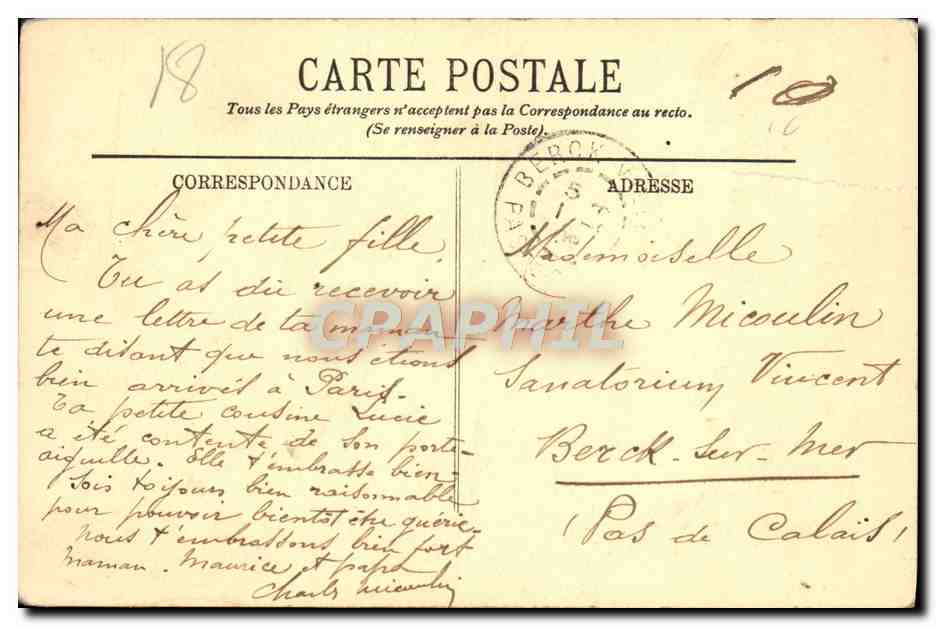 18
10
CARTE POSTALE
Tous les Pays étrangers n'acceptent pas la Correspondance au recto.
(Se renseigner à la Poste).
CORRESPONDANCE
Ma chère petite fille,
Tu as dû recevoir
une lettre de ta maman
te disant que nous étions
bien arrivés à Paris.
Ta petite cousine Lucie
a été contente de son porte-
aiguille. Elle t'embrasse bien.
Sois toujours bien raisonnable
pour pouvoir bientôt être guérie.
nous t'embrassons bien fort
maman. Maurice et papa
Charles Micoulin
BERCK
5
1
PAS
ADRESSE
Mademoiselle
Marthe Micoulin
Sanatorium Vincent
Berck-sur-Mer
(Pas de Calais)
CPAPHIL